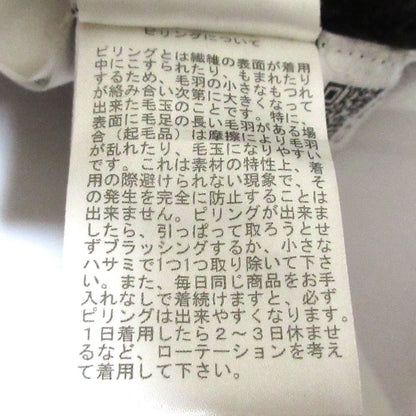 ピリングについて
ピリングとは繊維の表面が着用
中にこすられたり、もまれたり
するため、毛羽の小さなもつれ
が絡み合い次第に大きくなって
出来た毛玉のことです。特に、
表面に毛足の長い毛羽がある場
合（起毛品）は摩擦により毛羽
が乱れたり、毛玉になりやすい
です。これは素材の特性上、着
用の際避けられない現象で、そ
の発生を完全に防止することは
出来ません。ピリングが出来ま
したら、引っぱって取ろうとせ
ずブラッシングするか、小さな
ハサミで1つ1つ取り除いて下さ
い。また、毎日同じ商品をお手
入れなしで着続けますと、必ず
ピリングは出来やすくなります。
１日着用したら２～３日休ませ
るなど、ローテーションを考え
て着用して下さい。